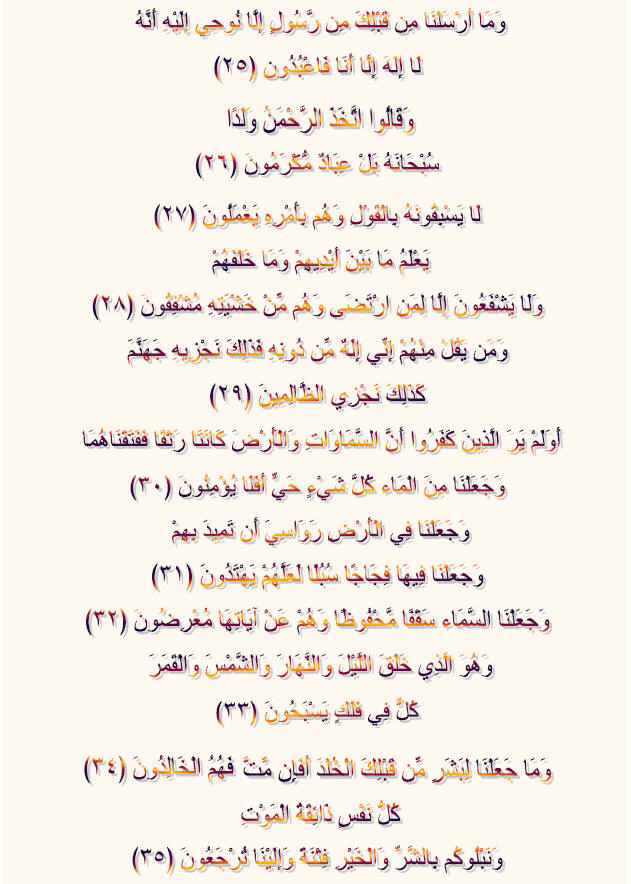 وَمَا أَرْسَلْنَا مِن قَبْلِكَ مِن رَّسُولٍ إِلَّا نُوحِي إِلَيْهِ أَنَّهُ
لَا إِلَهَ إِلَّا أَنَا فَاعْبُدُونِ (٢٥)
وَقَالُوا اتَّخَذَ الرَّحْمَنُ وَلَدًا
سُبْحَانَهُ بَلْ عِبَادٌ مُّكْرَمُونَ (٢٦)
لَا يَسْبِقُونَهُ بِالْقَوْلِ وَهُم بِأَمْرِهِ يَعْمَلُونَ (٢٧)
يَعْلَمُ مَا بَيْنَ أَيْدِيهِمْ وَمَا خَلْفَهُمْ
وَلَا يَشْفَعُونَ إِلَّا لِمَنِ ارْتَضَى وَهُم مِّنْ خَشْيَتِهِ مُشْفِقُونَ (٢٨)
وَمَن يَقُلْ مِنْهُمْ إِنِّي إِلَهٌ مِّن دُونِهِ فَذَلِكَ نَجْزِيهِ جَهَنَّمَ
كَذَلِكَ نَجْزِي الظَّالِمِينَ (٢٩)
أَوَلَمْ يَرَ الَّذِينَ كَفَرُوا أَنَّ السَّمَاوَاتِ وَالْأَرْضَ كَانَتَا رَتْقًا فَفَتَقْنَاهُمَا
وَجَعَلْنَا مِنَ الْمَاء كُلَّ شَيْءٍ حَيٍّ أَفَلَا يُؤْمِنُونَ (٣٠)
وَجَعَلْنَا فِي الْأَرْضِ رَوَاسِيَ أَن تَمِيدَ بِهِمْ
وَجَعَلْنَا فِيهَا فِجَاجًا سُبُلًا لَعَلَّهُمْ يَهْتَدُونَ (٣١)
وَجَعَلْنَا السَّمَاء سَقْفًا مَّحْفُوظًا وَهُمْ عَنْ آيَاتِهَا مُعْرِضُونَ (٣٢)
وَهُوَ الَّذِي خَلَقَ اللَّيْلَ وَالنَّهَارَ وَالشَّمْسَ وَالْقَمَرَ
كُلٌّ فِي فَلَكٍ يَسْبَحُونَ (٣٣)
وَمَا جَعَلْنَا لِبَشَرٍ مِّن قَبْلِكَ الْخُلْدَ أَفَإِن مِّتَّ فَهُمُ الْخَالِدُونَ (٣٤)
كُلُّ نَفْسٍ ذَائِقَةُ الْمَوْتِ
وَنَبْلُوكُم بِالشَّرِّ وَالْخَيْرِ فِتْنَةً وَإِلَيْنَا تُرْجَعُونَ (٣٥)